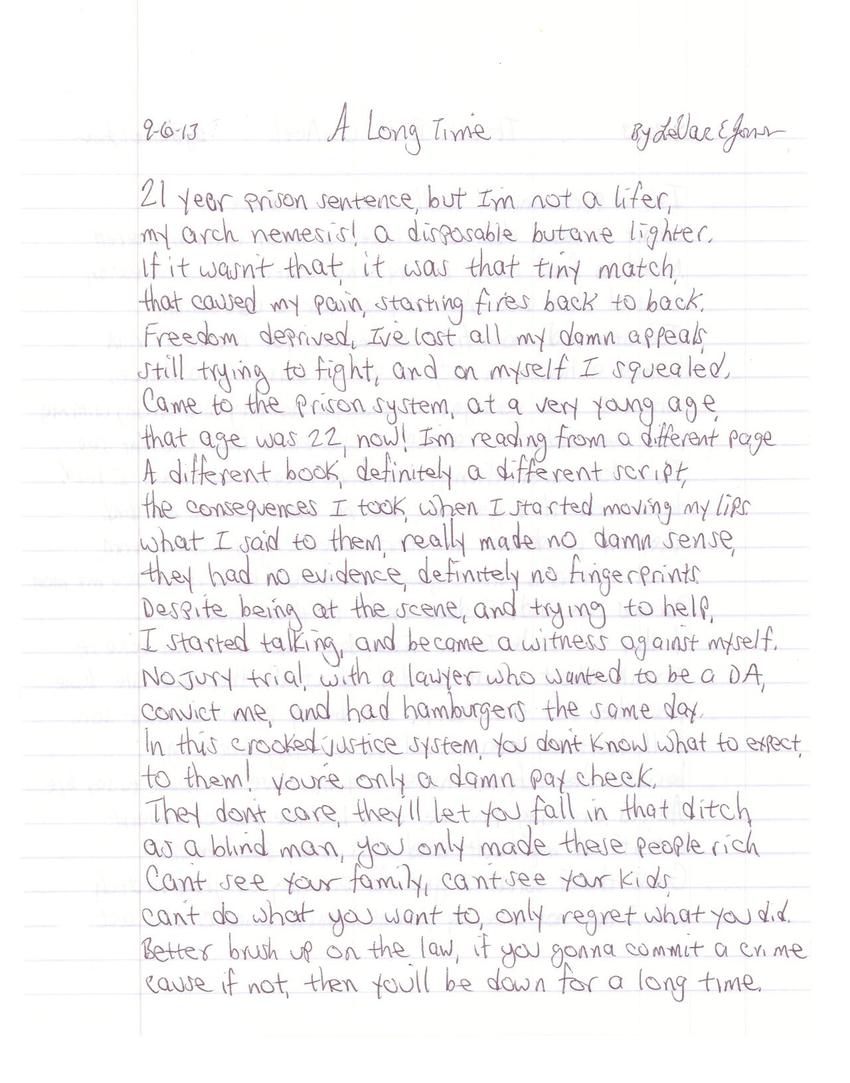 9-6-13 A Long Time By LeVar E Jones
21 year prison sentence, but Im not a lifer,
my arch nemesis! a disposable butane lighter.
If it wasnt that, it was that tiny match,
that caused my pain, starting fires back to back.
Freedom deprived, Ive lost all my damn appeals,
still trying to fight, and on myself I squealed.
Came to the prison system, at a very young age,
that age was 22, now! Im reading from a different page
A different book, definitely a different script,
the consequences I took, when I started moving my lips.
what I said to them, really made no damn sense,
they had no evidence, definitely no fingerprints.
Despite being at the scene, and trying to help,
I started talking, and became a witness against myself.
No jury trial, with a lawyer who wanted to be a DA,
convict me, and had hamburgers the same day.
In this crooked justice system, you dont know what to expect,
to them! youre only a damn pay check.
They dont care, they'll let you fall in that ditch,
as a blind man, you only made these people rich
Cant see your family, cant see your kids,
cant do what you want to, only regret what you did.
Better brush up on the law, if you gonna commit a crime
cause if not, then youll be down for a long time.